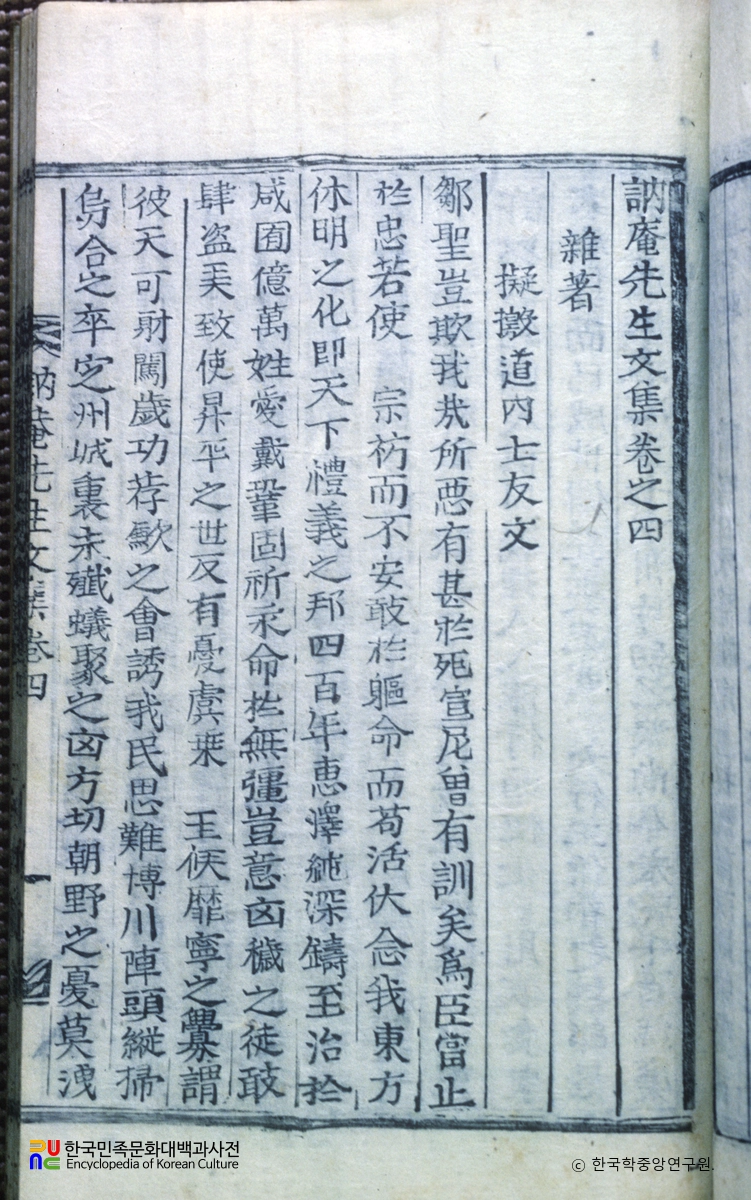 訥庵先生文集卷之四
雜著
擬檄道內士友文
鄒聖豈欺我哉所惡有甚於死宣尼曾有訓矣爲臣當止
於忠若使 宗祊而不安敢於軀命而苟活伏念我東方
休明之化卽天下禮義之邦四百年惠澤純深鑄至治於
咸囿億萬姓愛戴鞏固祈永命於無彊豈意凶穢之徒敢
肆盜美致使昇平之世反有憂虞乗 王候靡寧之釁謂
彼天可財闖歲功荐歉之會誘我民思難博川陣頭縱掃
烏合之卒定州城裏未殲蟻聚之凶方切朝野之憂莫洩
訥菴先生文集卷四
한국민족문화대백과사전
Encyclopedia of Korean Culture
ⓒ 한국학중앙연구원